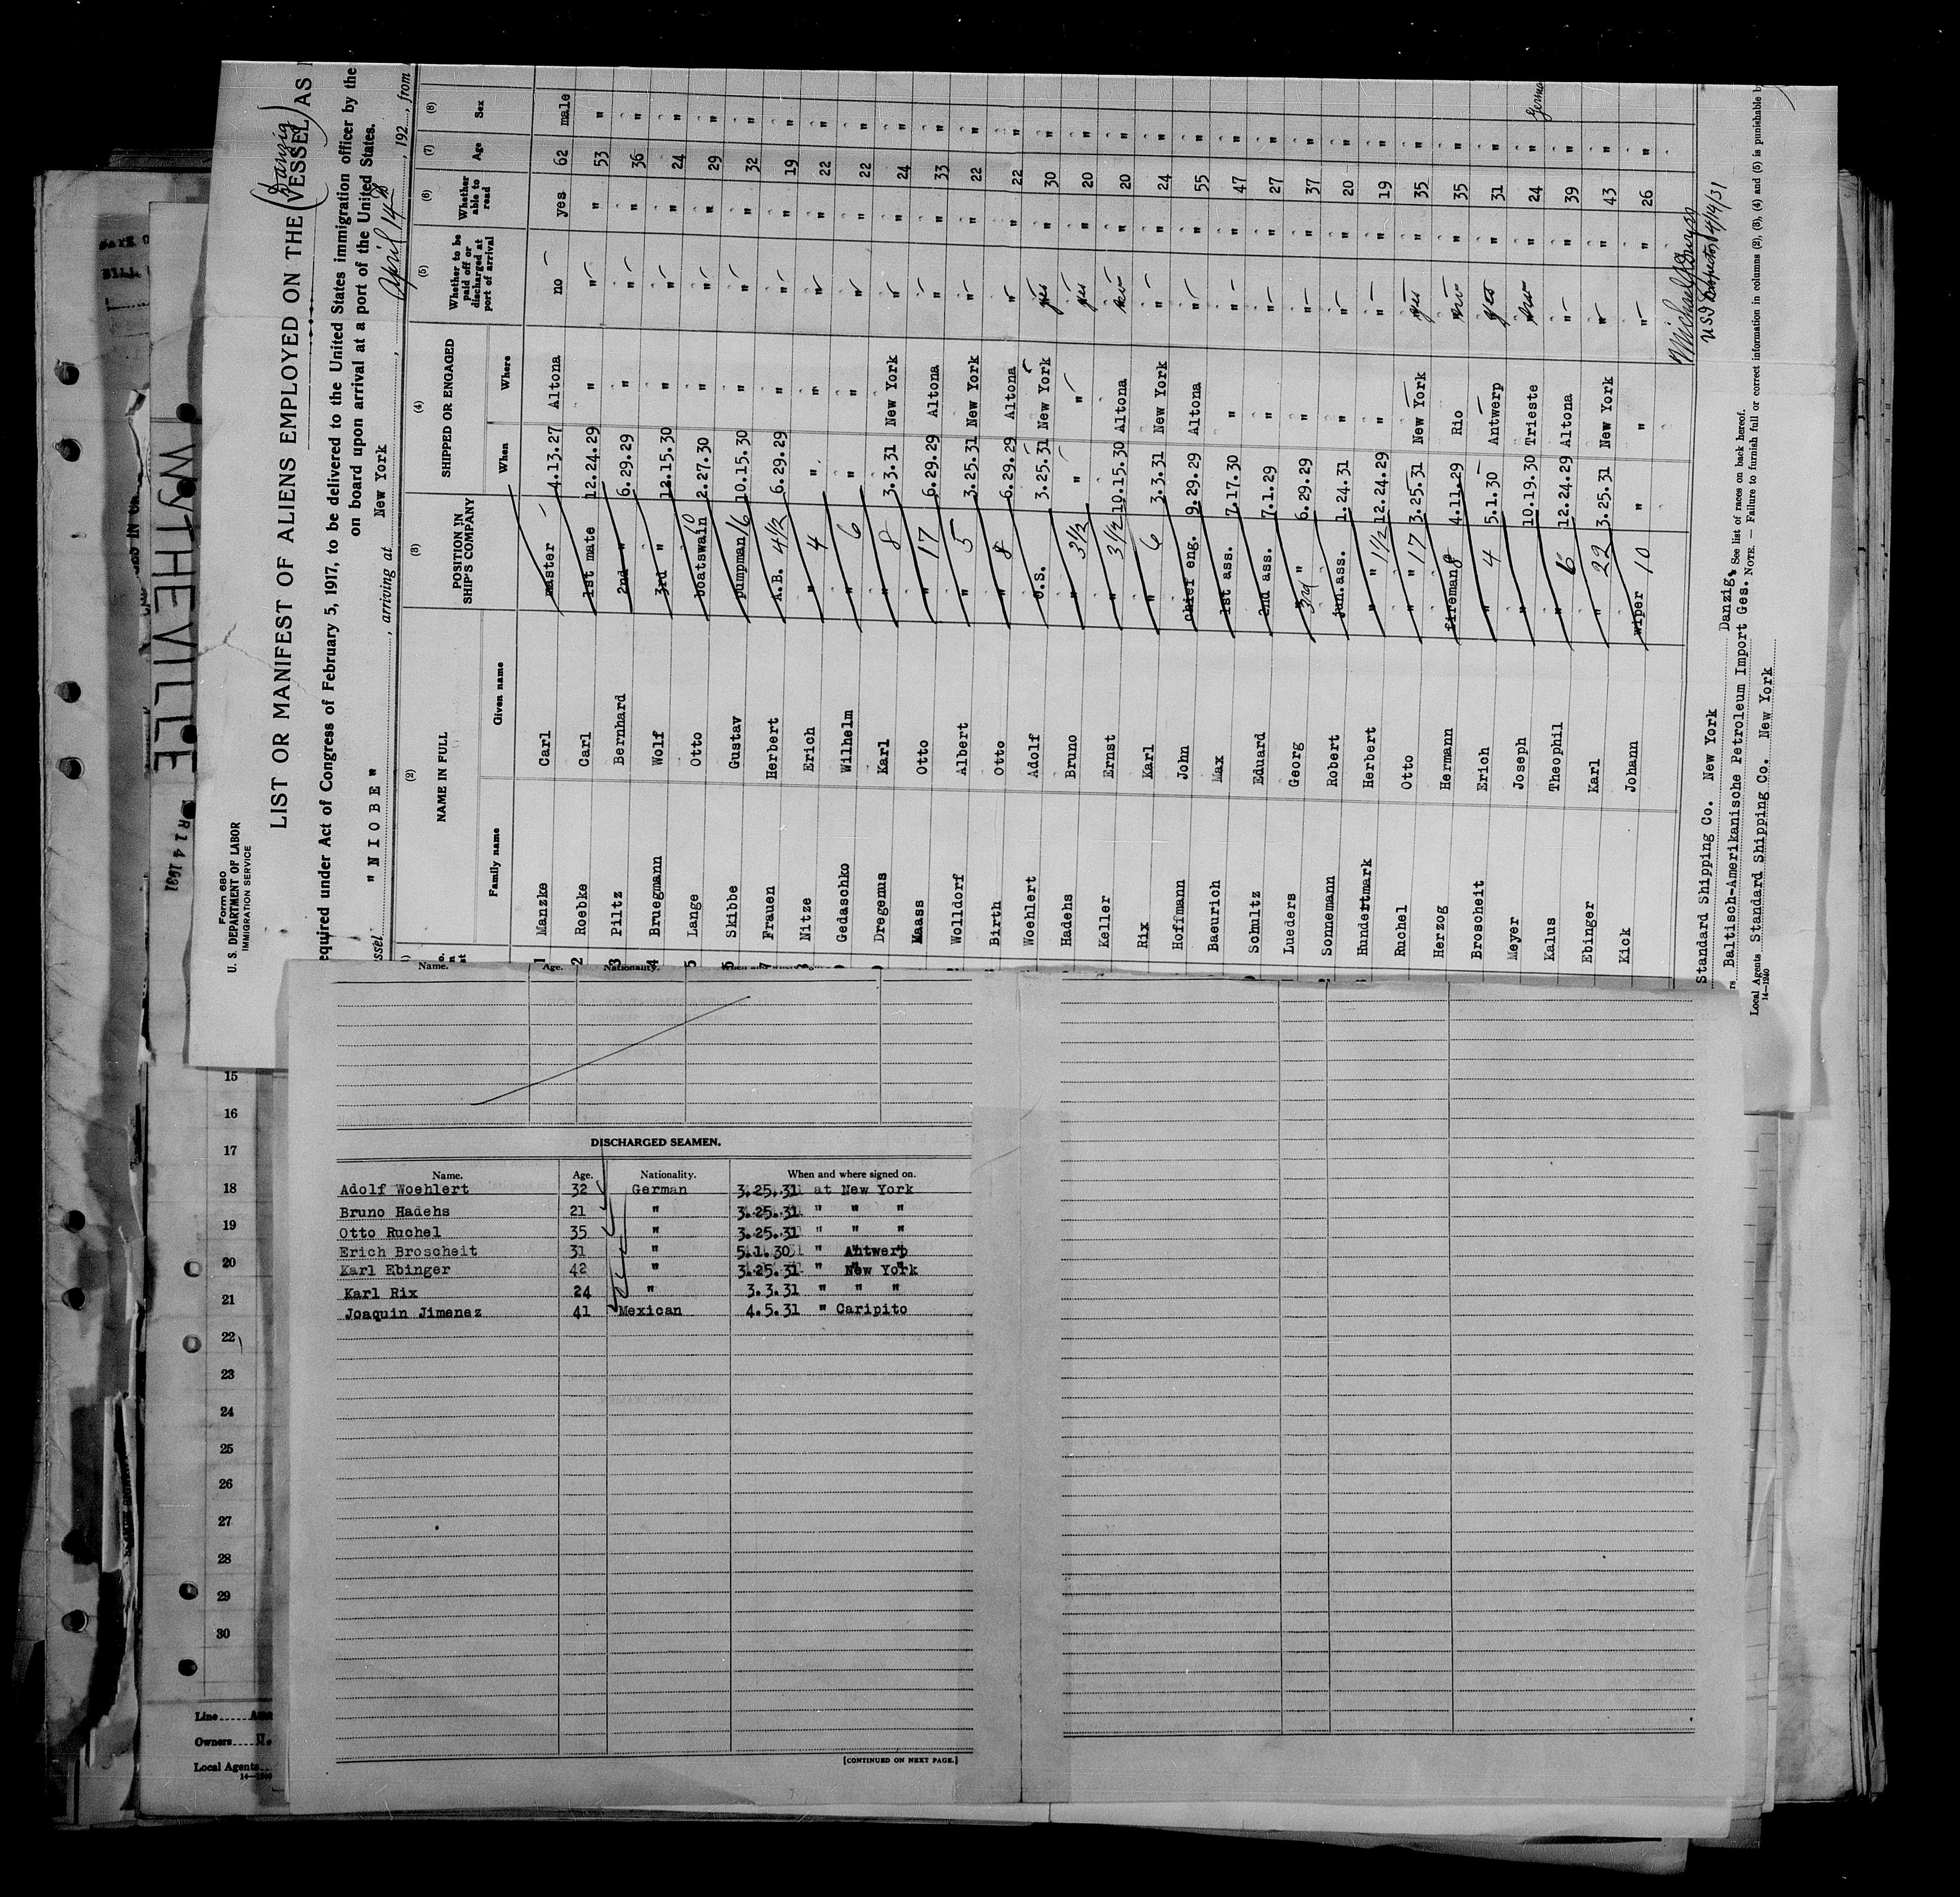 WYTHEVILLE
Form 680
U. S. DEPARTMENT OF LABOR
IMMIGRATION SERVICE
(Danzig)
LIST OR MANIFEST OF ALIENS EMPLOYED ON THE VESSEL AS
equired under Act of Congress of February 5, 1917, to be delivered to the United States immigration officer by the
on board upon arrival at a port of the United States.
ssel " N I O B E " , arriving at New York , April 14th , 192 , from
(2) (3) (4) (5) (6) (7) (8)
NAME IN FULL POSITION IN SHIP'S COMPANY SHIPPED OR ENGAGED Whether to be paid off or discharged at port of arrival Whether able to read Age Sex
Family name Given name When Where
1 Manzke Carl master 4.13.27 Altona no yes 62 male
2 Roebke Carl 1st mate 12.24.29 " " " 53 "
3 Piltz Bernhard 2nd " 6.29.29 " " " 36 "
4 Bruegmann Wolf 3rd " 12.15.30 " " " 24 "
5 Lange Otto boatswain 10 2.27.30 " " " 29 "
6 Skibbe Gustav pumpman 16 10.15.30 " " " 32 "
7 Frauen Herbert A.B. 4½ 6.29.29 " " " 19 "
Nitze Erich " 4 " " " " 22 "
Gedaschko Wilhelm " 6 " " " " 22 "
Dregenus Karl " 8 3.3.31 New York " " 24 "
Maass Otto " 17 6.29.29 Altona " " 33 "
Wolldorf Albert " 5 3.25.31 New York " " 22 "
Birth Otto " 8 6.29.29 Altona " " 22 "
Woehlert Adolf O.S. 3.25.31 New York yes " 30 "
Hadehs Bruno " 3½ " " yes " 20 "
Keller Ernst " 3½ 10.15.30 Altona no " 20 "
Rix Karl " 6 3.3.31 New York " " 24 "
Hoffmann John chief eng. 9.29.29 Altona " " 55 "
Baeurich Max 1st ass. 7.17.30 " " " 47 "
Schultz Eduard 2nd ass. 7.1.29 " " " 27 "
Lueders Georg 3rd " 6.29.29 " " " 37 "
Sonnemann Robert jun.ass. 1.24.31 " " " 20 "
Hundertmark Herbert " 1½ 12.24.29 " " " 19 "
Ruchel Otto " 17 3.25.31 New York yes " 35 "
Herzog Hermann fireman 8 4.11.29 Rio no " 35 "
Broscheit Erich " 4 5.1.30 Antwerp yes " 31 "
Meyer Joseph " 10.19.30 Trieste no " 24 "
Kalus Theophil " 6 12.24.29 Altona " " 39 "
Ebinger Karl " 22 3.25.31 New York " " 43 "
Kick Johann wiper 10 " " " " 26 "
4/14/31
Standard Shipping Co. New York
Danzig. See list of races on back hereof.
rs Baltisch-Amerikanische Petroleum Import Ges. NOTE. — Failure to furnish full or correct information in columns (2), (3), (4) and (5) is punishable by
Local Agents Standard Shipping Co. New York
14—1240
Name. Age. Nationality.
DISCHARGED SEAMEN.
Name. Age. Nationality. When and where signed on.
Adolf Woehlert 32 German 3.25.31 at New York
Bruno Hadehs 21 " 3.25.31 " " "
Otto Ruchel 35 " 3.25.31 " " "
Erich Broscheit 31 " 5.1.30 " Antwerp
Karl Ebinger 42 " 3.25.31 " New York
Karl Rix 24 " 3.3.31 " " "
Joaquin Jimenez 41 Mexican 4.5.31 " Caripito
[CONTINUED ON NEXT PAGE.]
15
16
17
18
19
20
21
22
23
24
25
26
27
28
29
30
Line
Owners
Local Agents